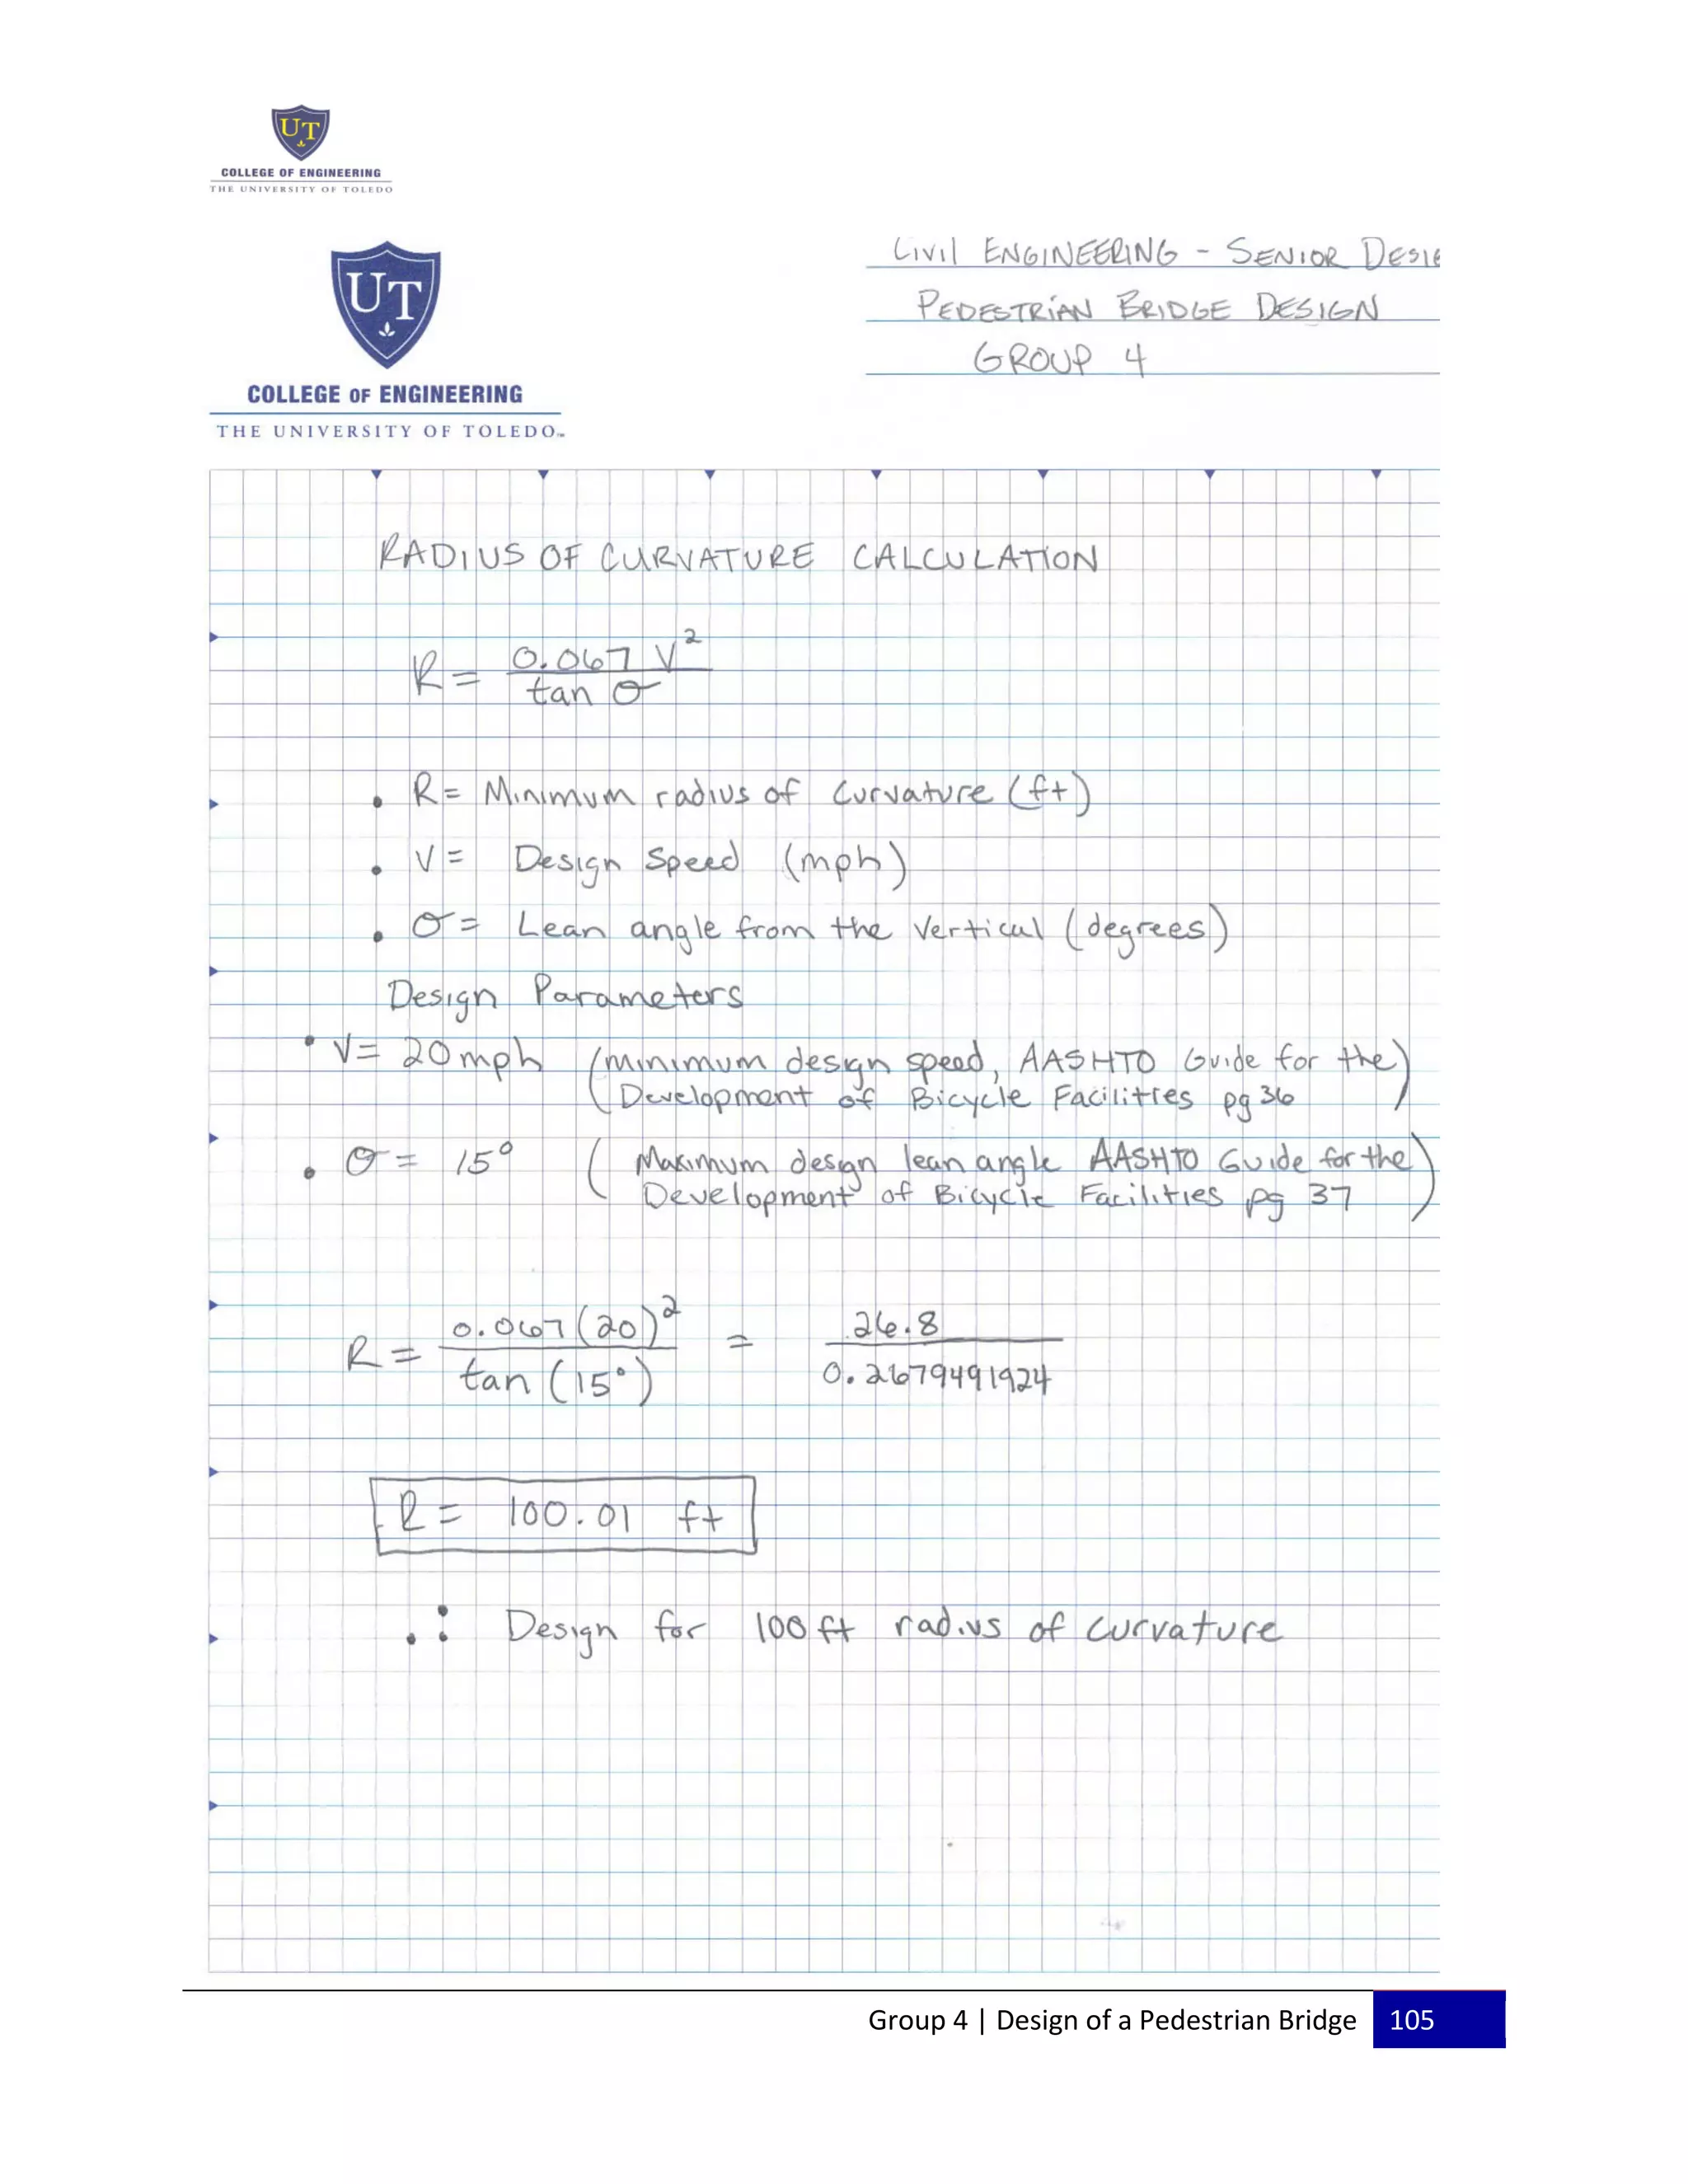 UT
COLLEGE OF ENGINEERING
THE UNIVERSITY OF TOLEDO
UT
COLLEGE OF ENGINEERING
THE UNIVERSITY OF TOLEDO™
CIVIL ENGINEERING - SENIOR DESIG
PEDESTRIAN BRIDGE DESIGN
GROUP 4
RADIUS OF CURVATURE CALCULATION
R = 0.067 V² / tan σ
• R = Minimum radius of Curvature (ft)
• V = Design Speed (mph)
• σ = Lean angle from the Vertical (degrees)
Design Parameters
• V = 20 mph (minimum design speed, AASHTO Guide for the
Development of Bicycle Facilities pg 36)
• σ = 15° (Maximum design lean angle AASHTO Guide for the
Development of Bicycle Facilities pg 37)
R = 0.067 (20)² / tan (15°) = 26.8 / 0.2679491924
R = 100.01 ft
∴ Design for 100 ft radius of curvature
Group 4 | Design of a Pedestrian Bridge 105